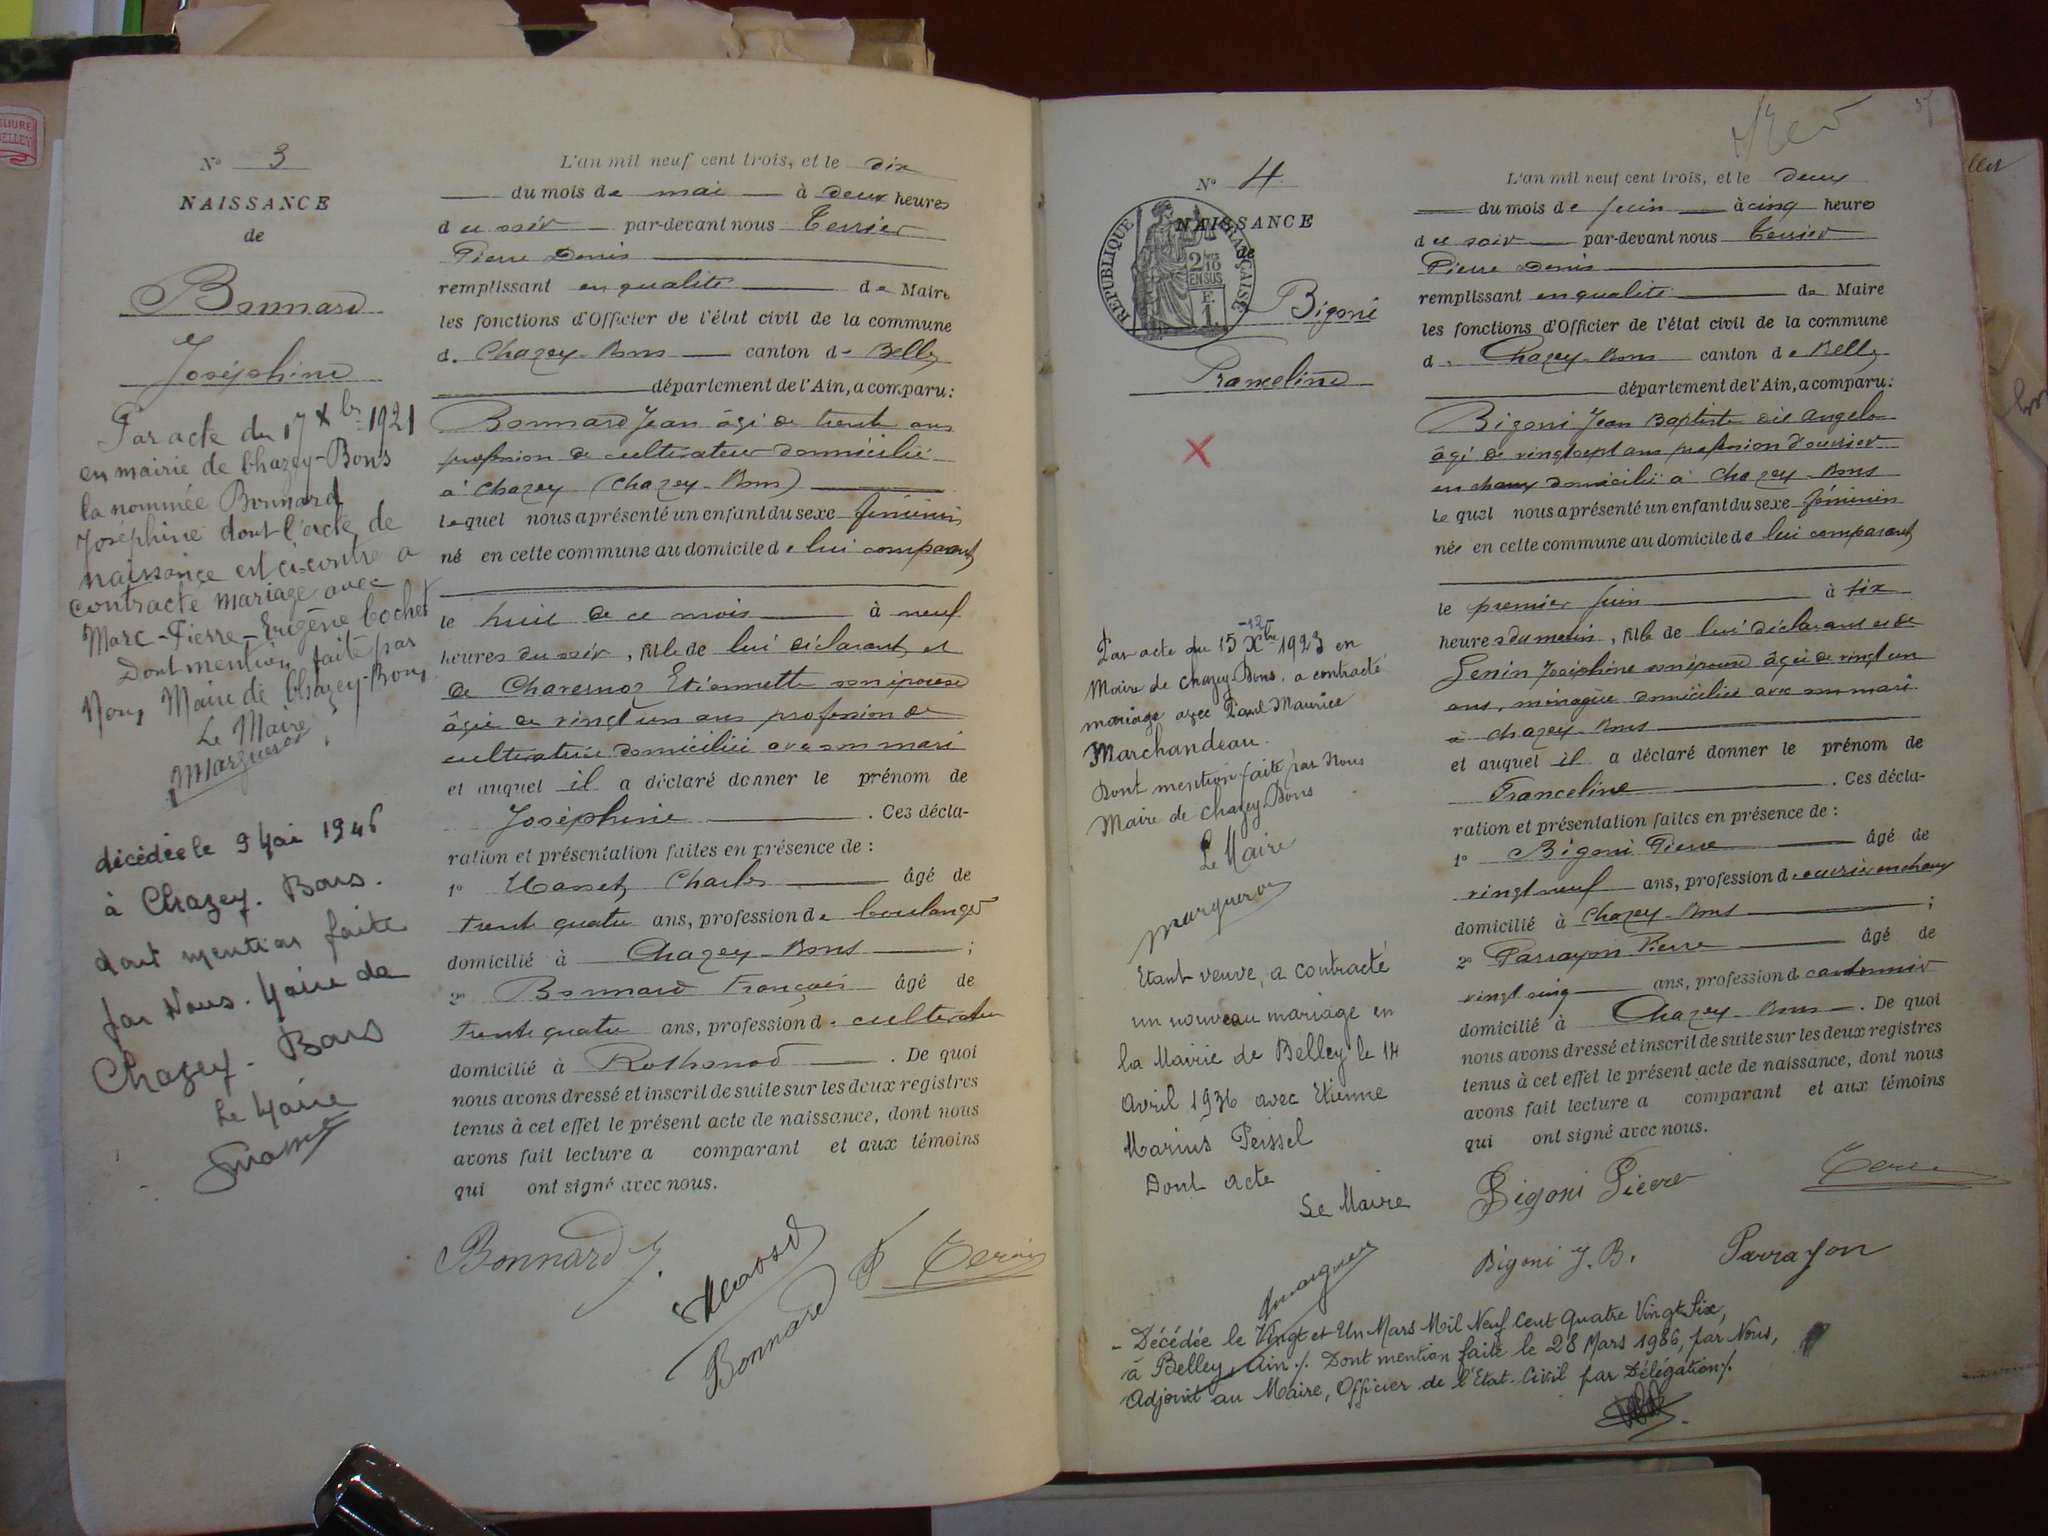 N° 3
NAISSANCE
de
Bonnard
Joséphine
Par acte du 17 Xbre 1921
en mairie de Chazey-Bons
la nommée Bonnard
Joséphine dont l'acte de
naissance est ci-contre a
contracté mariage avec
Marc-Pierre-Eugène Cochet
Dont mention faite par
Nous Maire de Chazey-Bons
Le Maire
Margueron
décédée le 9 Mai 1946
à Chazey-Bons.
dont mention faite
par Nous. Maire de
Chazey-Bons
Le Maire
L'an mil neuf cent trois, et le dix
du mois de mai à deux heures
du soir par-devant nous Terrier
Pierre Denis
remplissant en qualité de Maire
les fonctions d'Officier de l'état civil de la commune
d. Chazey-Bons canton de Belley
département de l'Ain, a comparu:
Bonnard Jean âgé de trente ans
profession de cultivateur domicilié
à Chazey (Chazey-Bons)
lequel nous a présenté un enfant du sexe féminin
né en cette commune au domicile de lui comparant
le huit de ce mois à neuf
heures du soir, fille de lui déclarant et
de Charesnoz Etiennette son épouse
âgée de vingt un ans profession de
cultivatrice domiciliée avec son mari
et auquel il a déclaré donner le prénom de
Joséphine . Ces décla-
ration et présentation faites en présence de :
1° Masset Charles âgé de
trente quatre ans, profession de boulanger
domicilié à Chazey-Bons ;
2° Bonnard François âgé de
trente quatre ans, profession d. cultivateur
domicilié à Rothonod . De quoi
nous avons dressé et inscrit de suite sur les deux registres
tenus à cet effet le présent acte de naissance, dont nous
avons fait lecture a comparant et aux témoins
qui ont signé avec nous.
Bonnard J.
Bonnard F
N° 4
NAISSANCE
de
RÉPUBLIQUE FRANÇAISE
2/10
EN SUS
F.
1
Bigoni
Franceline
Par acte du 15 -12- Xbre 1923 en
Mairie de Chazey-Bons, a contracté
mariage avec Paul Maurice
Marchandeau.
Dont mention faite par Nous
Maire de Chazey-Bons
Le Maire
Margueron
Etant veuve, a contracté
un nouveau mariage en
la Mairie de Belley le 14
Avril 1936 avec Etienne
Marius Peissel
Dont acte
Le Maire
Margueron
L'an mil neuf cent trois, et le deux
du mois de juin à cinq heures
du soir par-devant nous Terrier
Pierre Denis
remplissant en qualité de Maire
les fonctions d'Officier de l'état civil de la commune
d. Chazey-Bons canton de Belley
département de l'Ain, a comparu:
Bigoni Jean Baptiste dit Angelo
âgé de vingt sept ans profession d'ouvrier
en chaux domicilié à Chazey-Bons
lequel nous a présenté un enfant du sexe féminin
née en cette commune au domicile de lui comparant
le premier juin à six
heures du matin, fille de lui déclarant et de
Genin Joséphine son épouse âgée de vingt un
ans, ménagère domiciliée avec son mari
à Chazey-Bons
et auquel il a déclaré donner le prénom de
Franceline . Ces décla-
ration et présentation faites en présence de :
1° Bigoni Pierre âgé de
vingt neuf ans, profession d. ouvrier en chaux
domicilié à Chazey-Bons ;
2° Parrayon Pierre âgé de
vingt cinq ans, profession d. cordonnier
domicilié à Chazey-Bons . De quoi
nous avons dressé et inscrit de suite sur les deux registres
tenus à cet effet le présent acte de naissance, dont nous
avons fait lecture a comparant et aux témoins
qui ont signé avec nous.
Bigoni Pierre
Bigoni J. B. Parrayon
- Décédée le Vingt et Un Mars Mil Neuf Cent Quatre Vingt Six,
à Belley, Ain ./. Dont mention faite le 28 Mars 1986, par Nous,
Adjoint au Maire, Officier de l'Etat-Civil par Délégation ./.